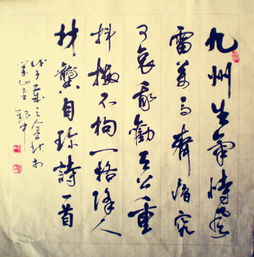 九州生氣恃風
雷萬馬齊喑究
可哀我勸天公重
抖擻不拘一格降人
材龔自珍詩一首
戊子